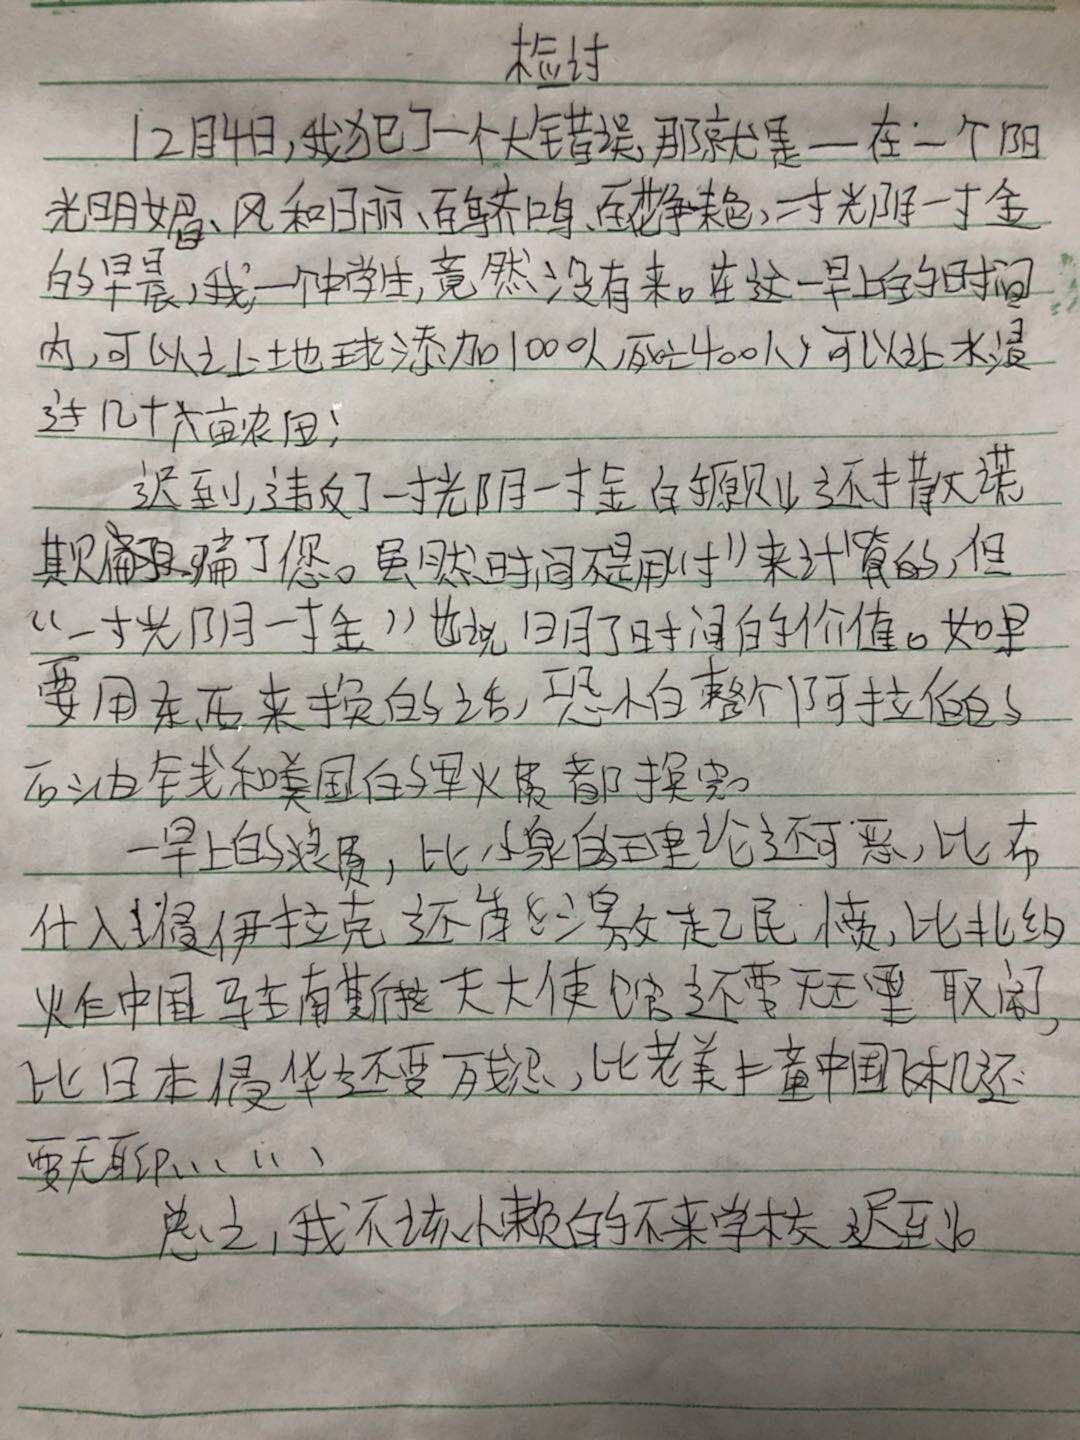 检讨
12月4日,我犯了一个大错误,那就是—在一个阳
光明媚、风和日丽、百鸟齐鸣、百花争艳,一寸光阴一寸金
的早晨,我,一个中学生,竟然没有来。在这一早上的时间
内,可以让地球添加1000人,死亡400人,可以让水浸
过几十亩农田;
迟到,违反了一寸光阴一寸金的原则,还扯大谎
欺骗了您。虽然时间不是用“寸”来计算的,但
“一寸光阴一寸金”也说明了时间的价值。如果
要用东西来换的话,恐怕整个阿拉伯的
石油钱和美国的军火费都换完。
一早上的浪费,比小泉的理论还可恶,比布
什入侵伊拉克还能激起民愤,比北约
炸中国驻南斯拉夫大使馆还要无理取闹,
比日本侵华还要残忍,比老美撞中国飞机还
要无聊……
总之,我不该懒的不来学校,迟到。